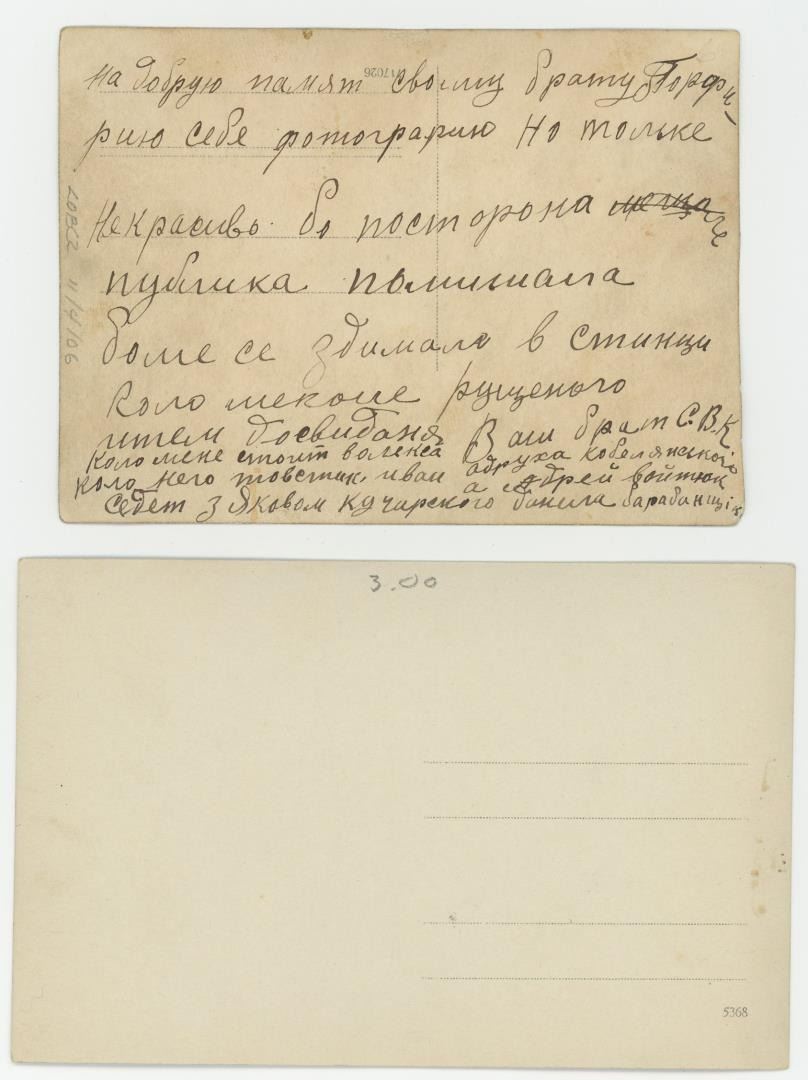 на добрую памят своему брату Порфи-
рию себе фотографию но тольке
Некрасиво бо посторона
публика помишала
боме се здимале в стинци
коло меколе рущеного
итем досвиданя Ваш брат С.В.К
коло мене стоит волекса адруха кобелянского
коло него товстик. иван а андрей войтюк
седет з Яковом кучирского данила барабанщік
17026
LOBCZ 11/4/06
3.00
5368